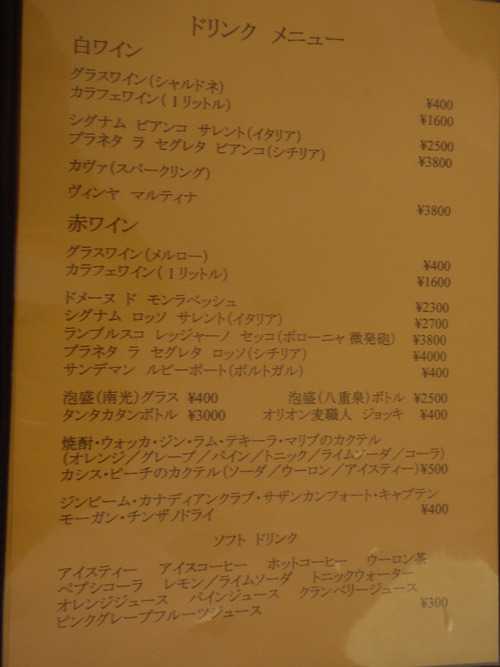 ドリンク メニュー
白ワイン
グラスワイン(シャルドネ) ¥400
カラフェワイン(1リットル) ¥1600
シグナム ビアンコ サレント(イタリア) ¥2500
プラネタ ラ セグレタ ビアンコ(シチリア) ¥3800
カヴァ(スパークリング)
ヴィンヤ マルティナ ¥3800
赤ワイン
グラスワイン(メルロー) ¥400
カラフェワイン(1リットル) ¥1600
ドメーヌ ド モンラベッシュ ¥2300
シグナム ロッソ サレント(イタリア) ¥2700
ランブルスコ レッジャーノ セッコ(ボローニャ 微発砲) ¥3800
プラネタ ラ セグレタ ロッソ(シチリア) ¥4000
サンデマン ルビーポート(ポルトガル) ¥400
泡盛(南光)グラス ¥400 泡盛(八重泉)ボトル ¥2500
タンタカタンボトル ¥3000 オリオン麦職人 ジョッキ ¥400
焼酎・ウォッカ・ジン・ラム・テキーラ・マリブのカクテル
(オレンジ/グレープ/パイン/トニック/ライムソーダ/コーラ)
カシス・ピーチのカクテル(ソーダ/ウーロン/アイスティー)¥500
ジンビーム・カナディアンクラブ・サザンカンフォート・キャプテン
モーガン・チンザノドライ ¥400
ソフト ドリンク
アイスティー アイスコーヒー ホットコーヒー ウーロン茶
ペプシコーラ レモン/ライムソーダ トニックウォーター
オレンジジュース パインジュース クランベリージュース
ピンクグレープフルーツジュース ¥300